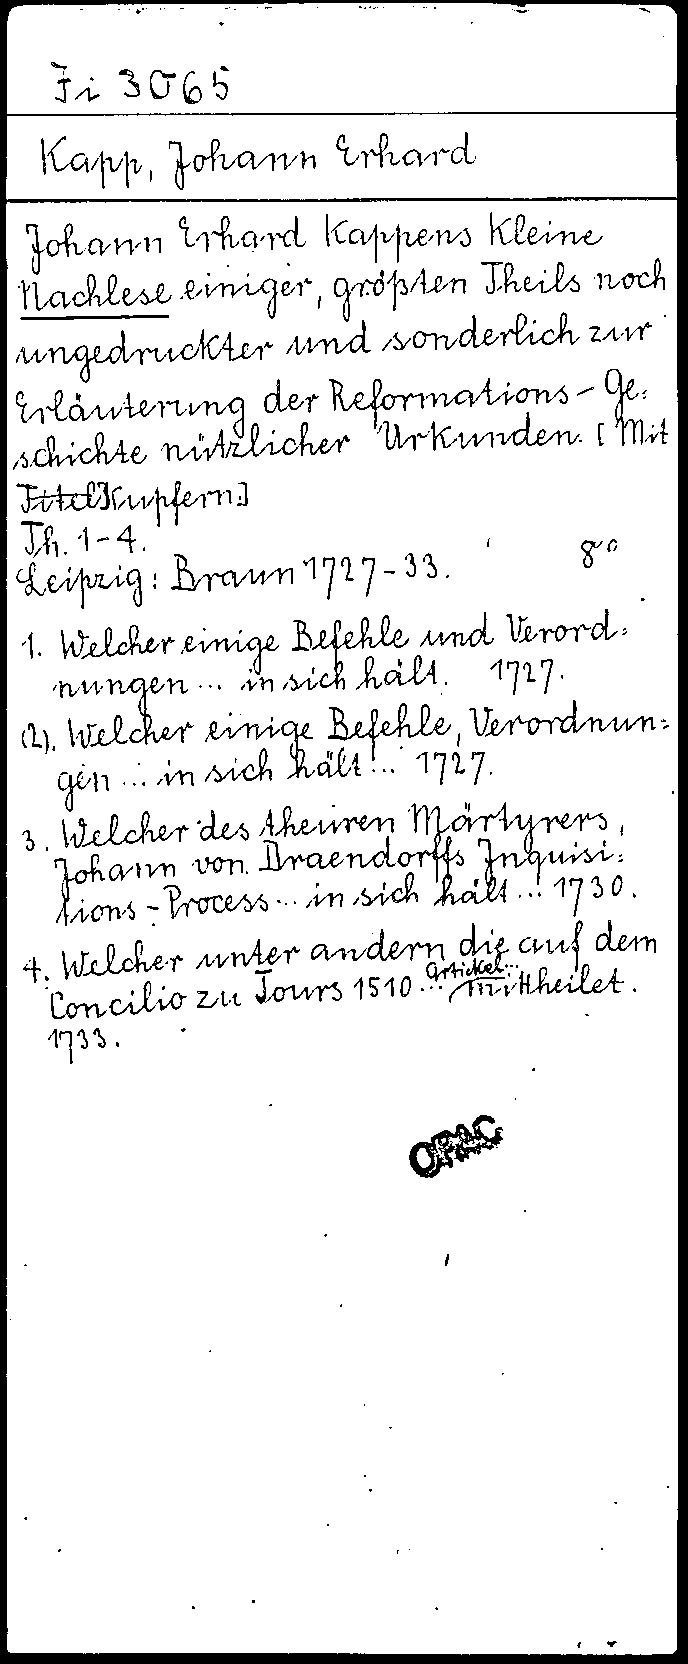 Fi 3065
Kapp, Johann Erhard
Johann Erhard Kappens Kleine
Nachlese einiger, größten Theils noch
ungedruckter und sonderlich zur
Erläuterung der Reformations-Ge=
schichte nützlicher Urkunden. [Mit
Titel]Kupfern.]
Th. 1-4.
Leipzig: Braun 1727-33. 8°
1. Welcher einige Befehle und Verord=
nungen... in sich hält. 1727.
(2). Welcher einige Befehle, Verordnun=
gen... in sich hält... 1727.
3. Welcher des theuren Märtyrers,
Johann von Draendorffs Inquisi=
tions-Process... in sich hält... 1730.
4. Welcher unter andern die auf dem
Concilio zu Tours 1510... Artickel... mittheilet.
1733.
OPAC